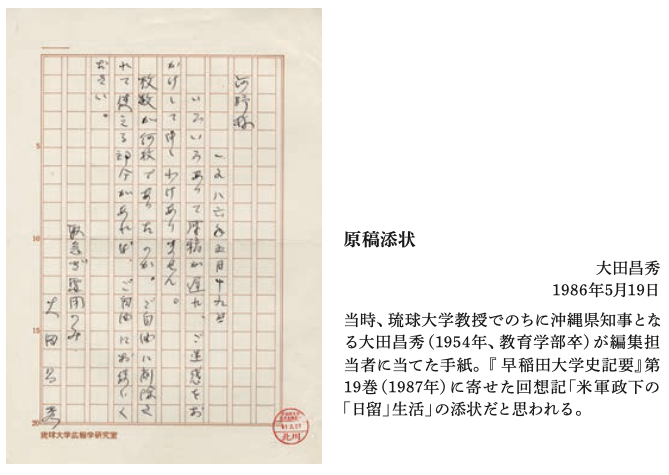 河野様
一九八六年五月十九日
いろいろありて原稿が遅れ、ご迷惑をお
かけして申しわけありません。
枚数が何枚でありたのか。ご自由に削除さ
れて使える部分があれば、ご自由にお使いく
ださい。
取急ぎ要用のみ
大田昌秀
5
10
15
20
琉球大学広報学研究室
北川
原稿添状
大田昌秀
1986年5月19日
当時、琉球大学教授でのちに沖縄県知事とな
る大田昌秀（1954年、教育学部卒）が編集担
当者に当てた手紙。『早稲田大学史記要』第
19巻（1987年）に寄せた回想記「米軍政下の
「日留」生活」の添状だと思われる。